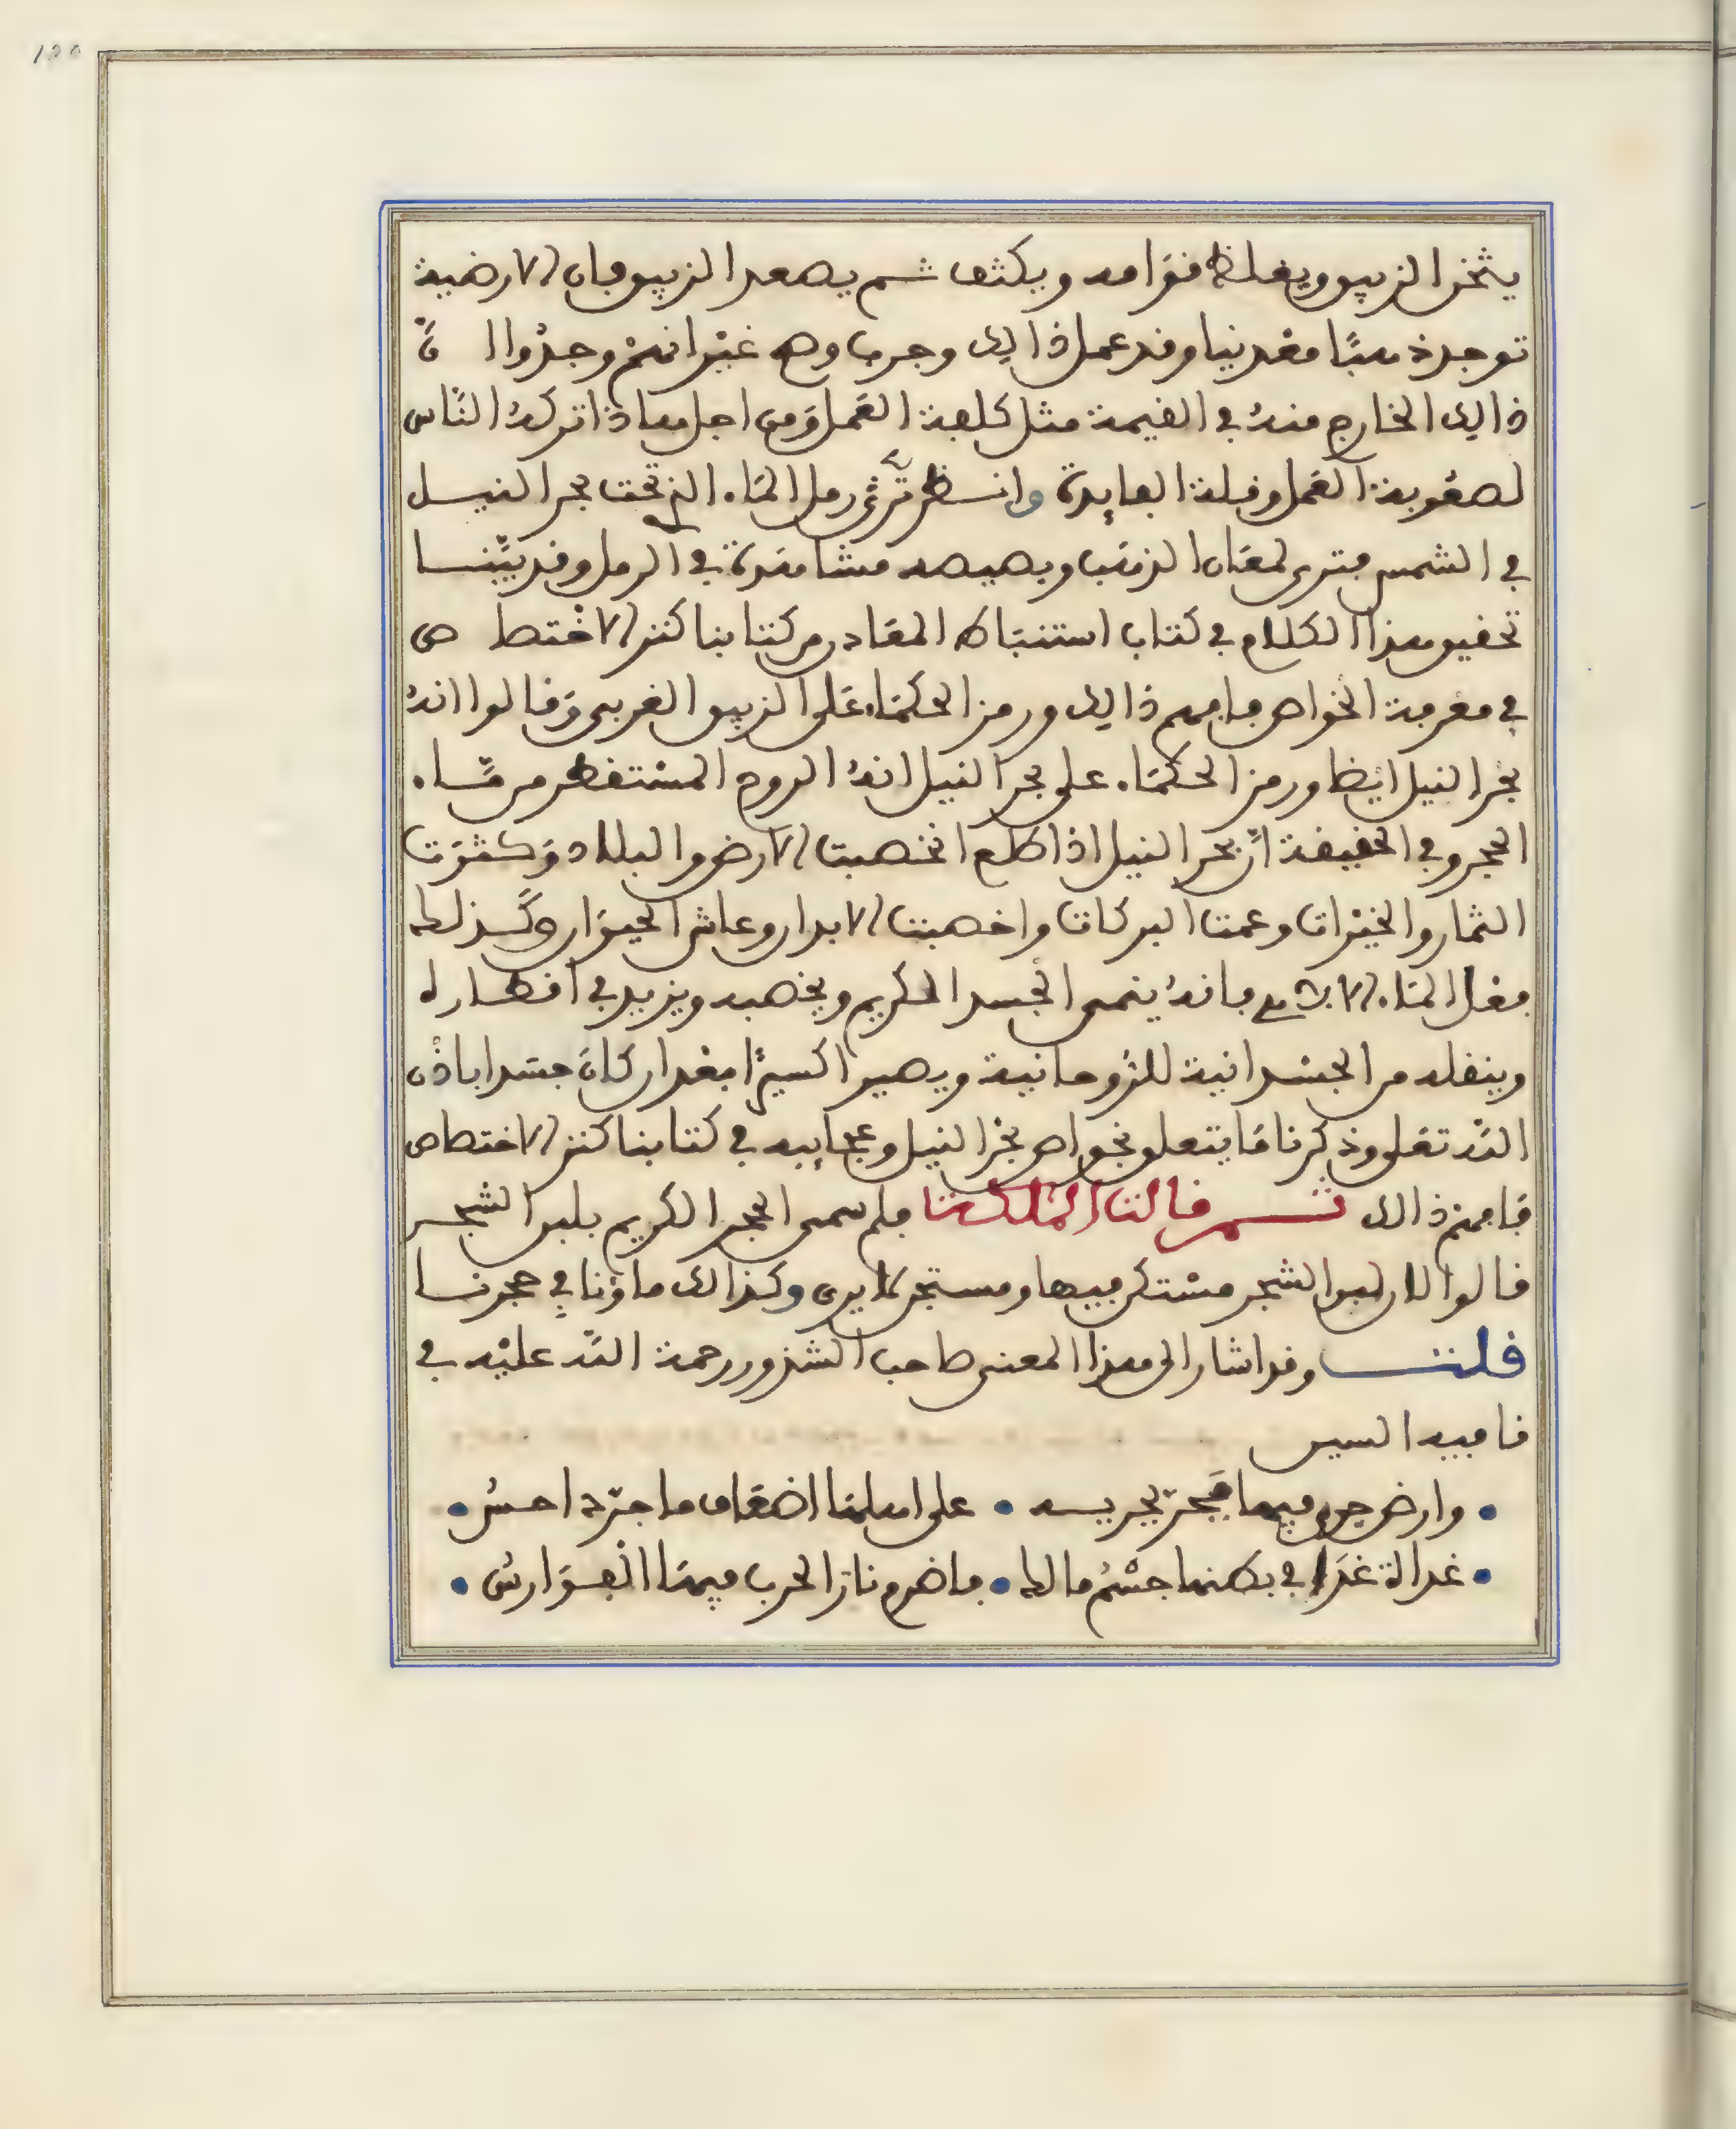 يثخن الزيبق ويغلظ قوامه ويكثف ثم يصعد الزيبق فان الارضية
توجد ذهبًا معدنيا وقد عمل ذالك وجرب وصح غيْر انهمْ وجدُوا انّ
ذالك الخارج منهُ في القيمة مثل كلفة العَمل وَمن اجل هاذا تركهُ النّاس
لصعُوبة العَمل وقلة الفايدة وانظر ترى رمل المَاء الذي تحت بحر النيل
في الشمس فترى لمعَان الذهَب وبصيصه مشاهَدة في الرمل وقد بيّنا
تحقيق هذا الكلام في كتاب استنبَاط المعَادن من كتابنا كنز الاختصاص
في معرفة الخواص فافهم ذالك ورمز الحكمَاء عَلى الزيبق الغربي وَقالوا انهُ
بحْر النيل ايْضا ورمز الحكمَاء على بحر النيل انهُ الروح المسْتقطر من مَّاء
الحجر وفي الحقيقة انّ بحر النيل اذا طلع اخصبت الارض والبلاد وَكثرَت
الثمار والخيْرات وعمت البركات واخصبت الابدان وعاش الحيوَان وكَذلك
فعل المَاء الالهي فانهُ ينمي الجَسد الكريم ويخصبه ويزيد في اقطاره
وينقله من الجسْدانية للرُوحانية ويصير اكسيرًا بعْد ان كانَ جسَدا باذْن
اللّه تعَلى وذكرنا مَا يتعلق بخواص بحْر النيل وعجايبه في كتابنا كنز الاختصاص
فَافهمْ ذالك ثم قالت المَلكة فلم سمي الحجر الكريم بلبن الشجر
قالوا لان لبن الشجر مسْتكن فيها ومستجن لا يرى وكذالك ماؤنا في حجرنا
قلت وقد اشار الى هذا المعنى صاحب الشذور رحمة اللّه عليْه في
قافية السين
• وارض جرى فيها • على اهلهَا اضعَاف ما جرّه احسُ •
• غدا في بطنها جسْمُ مالك • فاضرم نارَ الحرب فيهَا الْفوَارسُ •